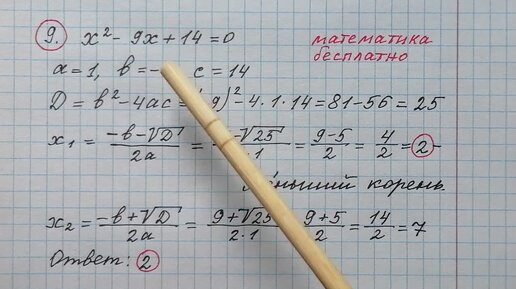 9. x² - 9x + 14 = 0
математика
бесплатно
a = 1, b = - c = 14
D = b² - 4ac = 9)² - 4·1·14 = 81 - 56 = 25
x₁ = (-b - √D)/2a = -√25/·1 = (9-5)/2 = 4/2 = 2
корень.
x₂ = (-b + √D)/2a = (9 + √25)/(2·1) = (9+5)/2 = 14/2 = 7
Ответ: 2